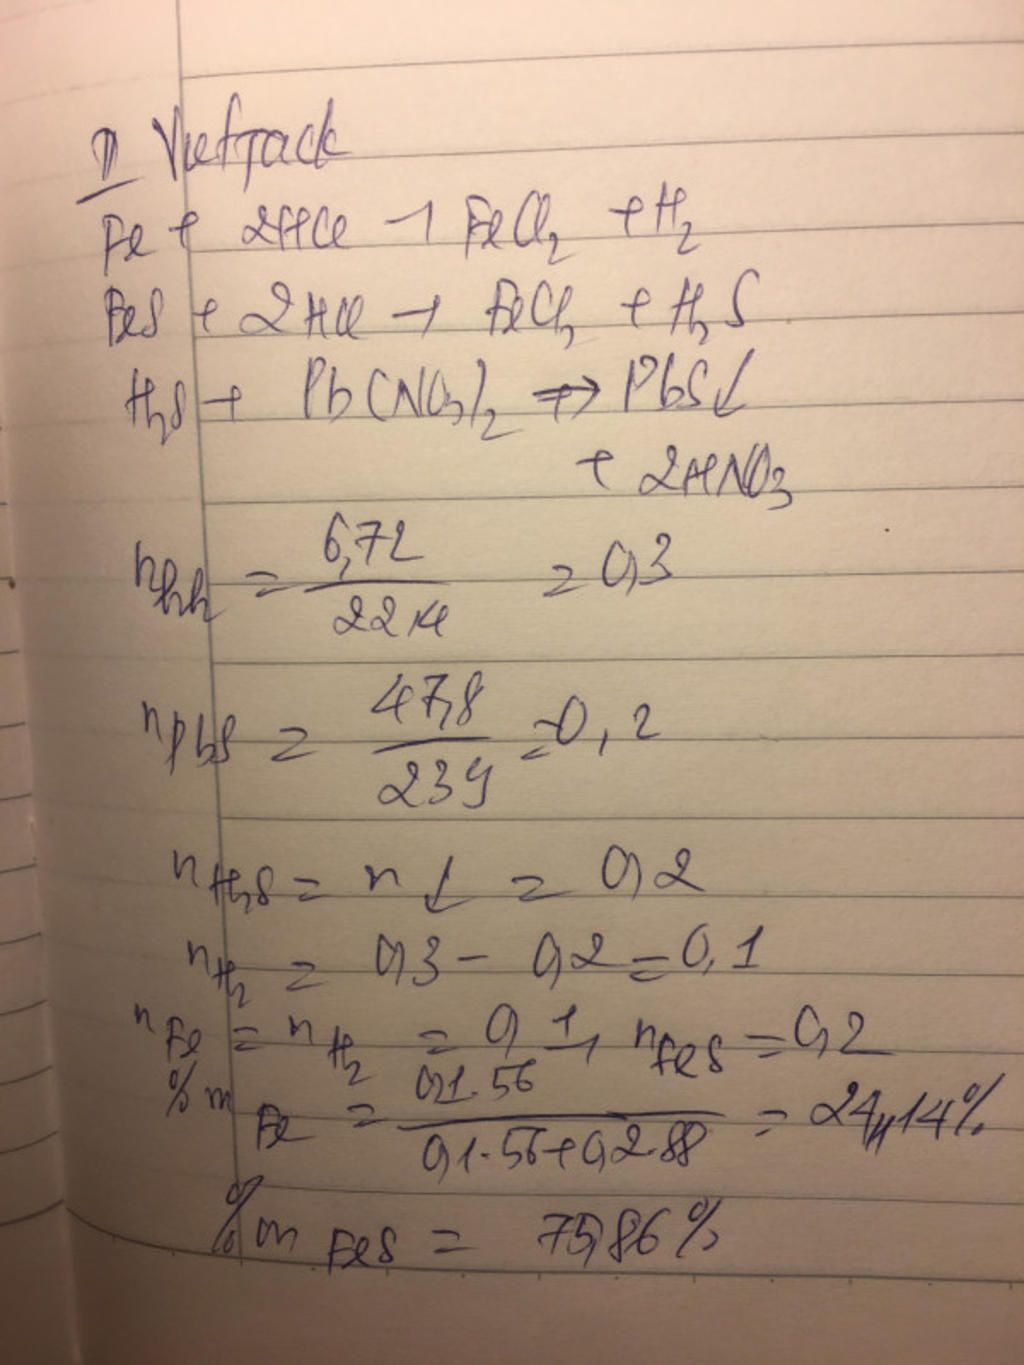 1 Vietjack
Fe + 2HCl → FeCl2 + H2
FeS + 2HCl → FeCl2 + H2S
H2S + Pb(NO3)2 → PbS↓
+ 2HNO3
nhh = 6,72 / 22,4 = 0,3
nPbS = 47,8 / 239 = 0,2
nH2S = n↓ = 0,2
nH2 = 0,3 - 0,2 = 0,1
nFe = nH2 = 0,1, nFeS = 0,2
%mFe = 0,1.56 / 0,1.56+0,2.88 = 24,14%
%mFeS = 75,86%